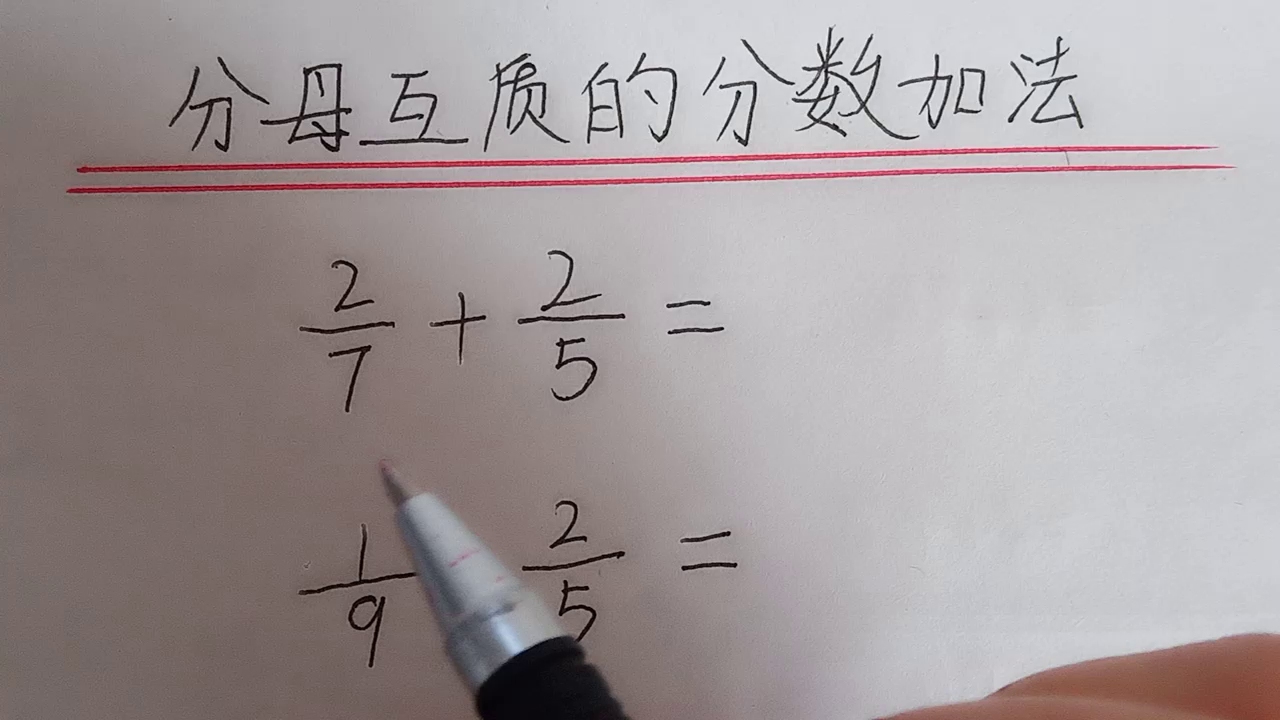 分母互质的分数加法
2/7 + 2/5 =
1/9 2/5 =